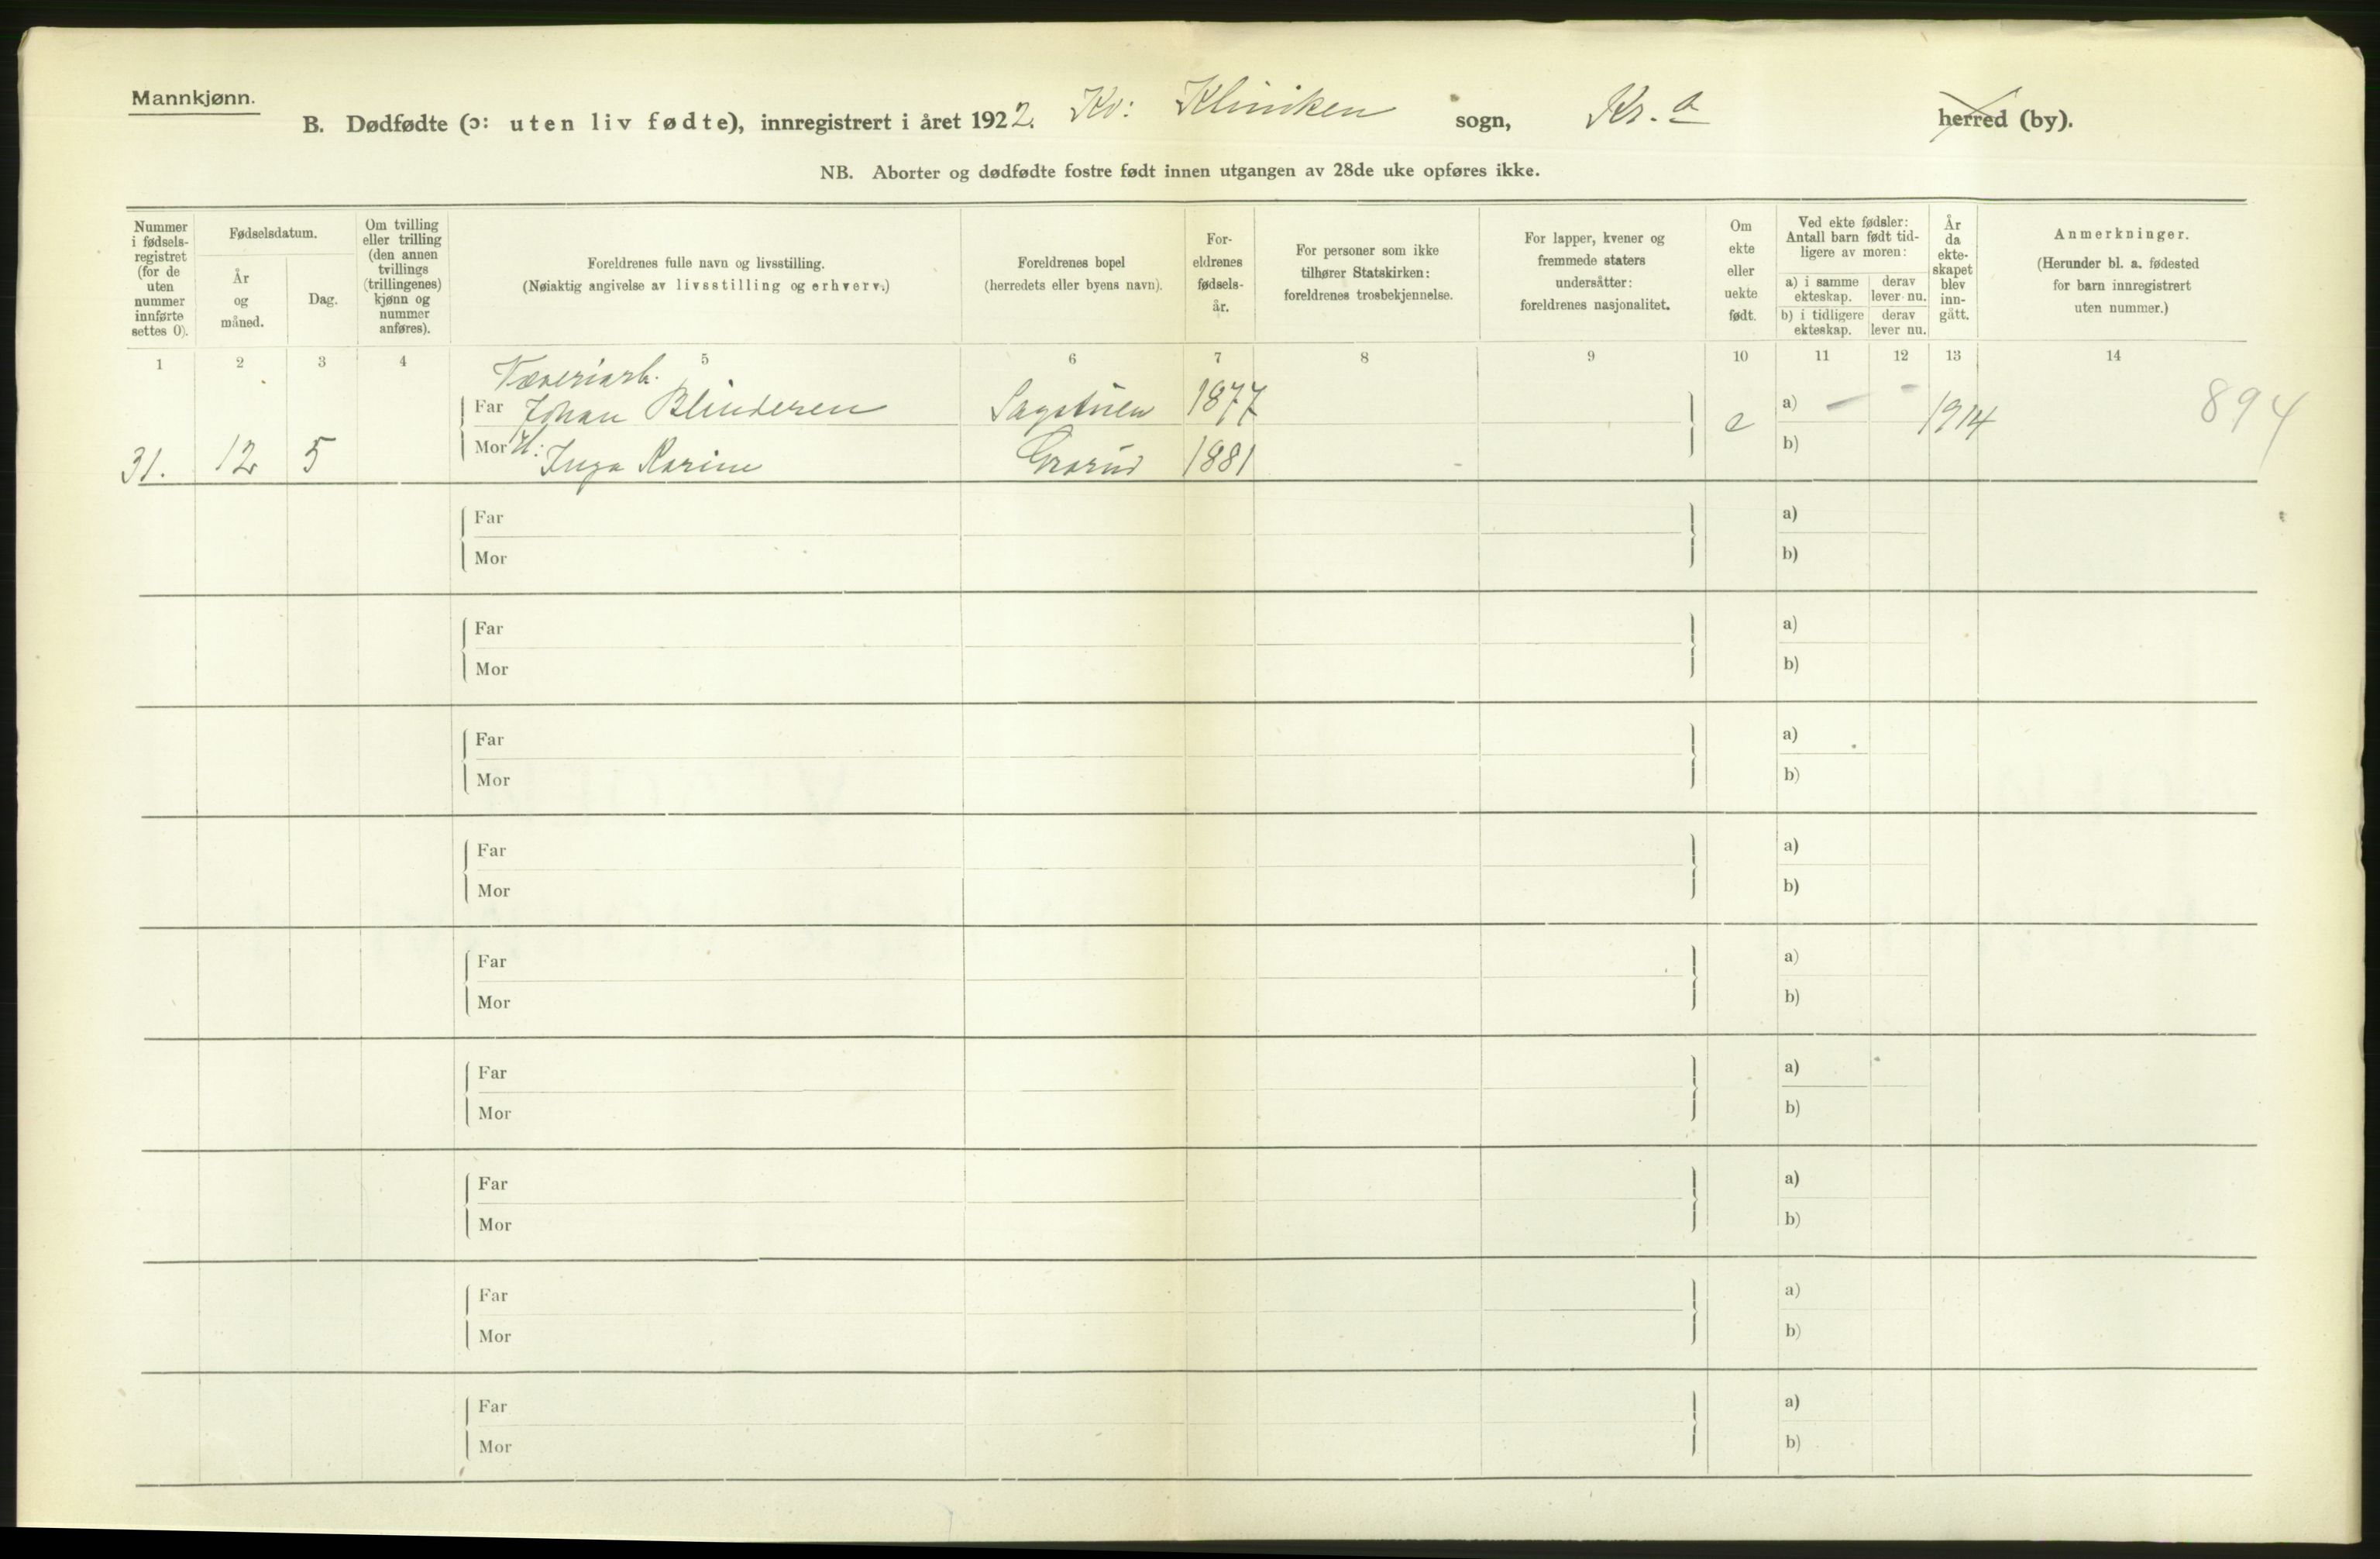 Mannkjønn.
B. Dødfødte (ɔ: uten liv fødte), innregistrert i året 1922. Kv: Kliniken sogn, Kr.a herred (by).
NB. Aborter og dødfødte fostre født innen utgangen av 28de uke opføres ikke.
Nummer i fødsels-registret (for de uten nummer innførte settes 0).
Fødselsdatum.
År og måned.
Dag.
Om tvilling eller trilling (den annen tvillings (trillingenes) kjønn og nummer anføres).
Foreldrenes fulle navn og livsstilling.
(Nøiaktig angivelse av livsstilling og erhverv.)
Foreldrenes bopel
(herredets eller byens navn).
For-eldrenes fødsels-år.
For personer som ikke tilhører Statskirken: foreldrenes trosbekjennelse.
For lapper, kvener og fremmede staters undersåtter: foreldrenes nasjonalitet.
Om ekte eller uekte født.
Ved ekte fødsler: Antall barn født tid-ligere av moren:
a) i samme ekteskap.
derav lever nu.
b) i tidligere ekteskap.
derav lever nu.
År da ekte-skapet blev inn-gått.
Anmerkninger.
(Herunder bl. a. fødested for barn innregistrert uten nummer.)
1 2 3 4 5 6 7 8 9 10 11 12 13 14
Væveriarb.
Far Johan Blinderen Sagstuen 1877 e a) — - 1914 894
31. 12 5 Mor H: Inga Karine Grorud 1881 b)
Far a)
Mor b)
Far a)
Mor b)
Far a)
Mor b)
Far a)
Mor b)
Far a)
Mor b)
Far a)
Mor b)
Far a)
Mor b)
Far a)
Mor b)
Far a)
Mor b)